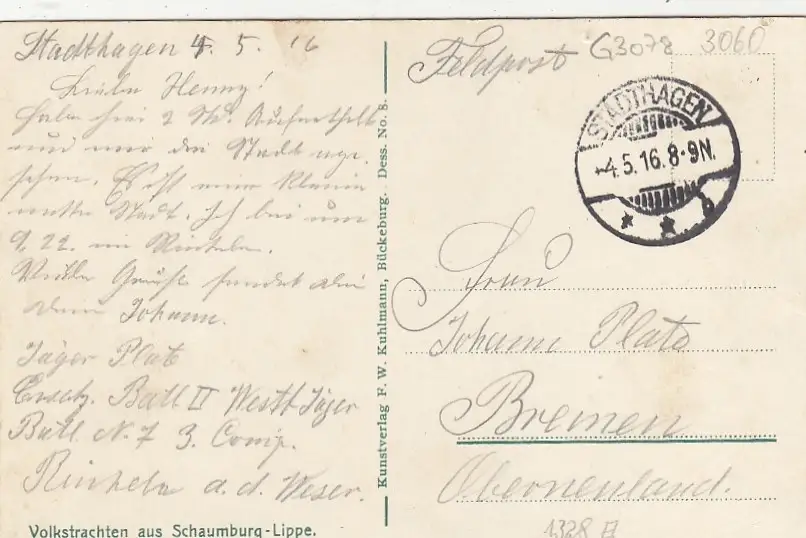 Stadthagen 4. 5. 16
Liebe Henny!
Habe hier 2 Std. Aufenthalt
und mir die Stadt ange-
sehen. Es ist eine kleine
nette Stadt. Ich bin um
9.22. in Rinteln.
Viele Grüße sendet dir
Dein Johann.
Jäger Plate
Ersatz. Batl II Westf Jäger
Batl. N. 7 3. Comp.
Rinteln a. d. Weser.
Volkstrachten aus Schaumburg-Lippe.
Kunstverlag F. W. Kuhlmann, Bückeburg. Dess. No. 8.
Feldpost
G3078 3060
STADTHAGEN
-4.5.16.8-9N.
Frau
Johann Plate
Bremen
Oberneuland.
1328